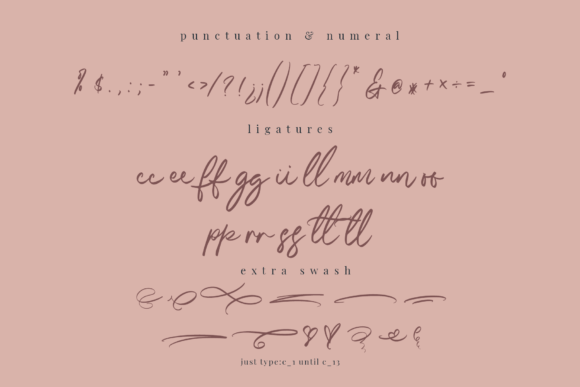 punctuation & numeral
% $ . , : ; - " ' < > / ? ! ¿ ¡ ( ) [ ] { } * & @ * + × ÷ = _ °
ligatures
cc ee ff gg ii ll mm nn oo
pp rr ss tt tl
extra swash
just type:c_1 until c_13